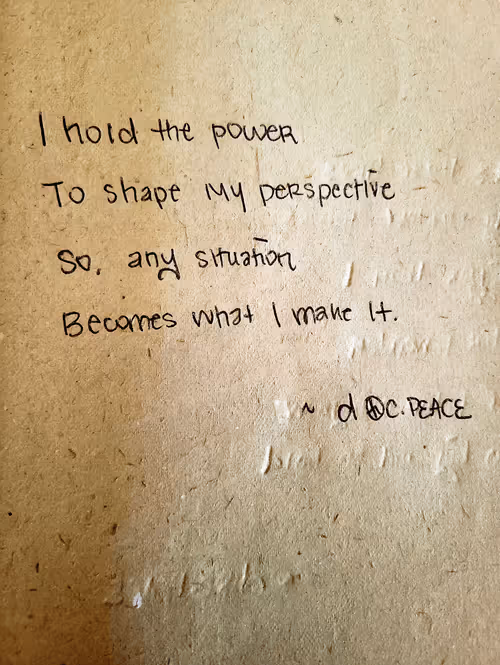 I hold the power
To shape my perspective
So, any situation
Becomes what I make it.
~ d☮c.PEACE